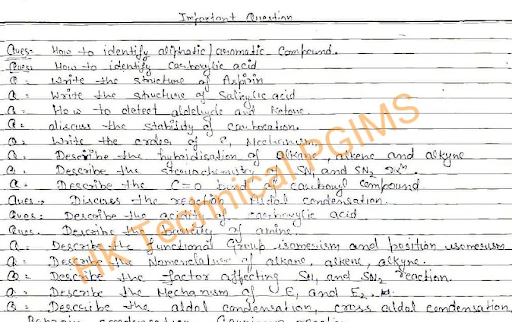 Important Question
Ques:- How to identify aliphatic/aromatic Compound.
Ques:- How to identify Carboxylic acid
Q:- Write the structure of Aspirin
Q:- Write the structure of Salicylic acid
Q:- How to detect aldehyde and Ketone.
Q:- discuss the stability of carbocation.
Q:- Write the order of E, Mechanism
Q:- Describe the hybridisation of alkane, alkene and alkyne
Q:- Describe the stereochemistry of SN1 and SN2 rxn.
Q:- Describe the C=O bond carbonyl compound
Ques:- Discuss the reaction Aldol condensation.
Ques:- Describe the acidity of carboxylic acid.
Ques:- Describe the basicity of amine.
Q:- Describe the functional Group isomerism and position isomerism
Q:- Describe the Nomenclature of alkane, alkene, alkyne.
Q:- Describe the factor affecting SN1 and SN2 reaction.
Q:- Describe the Mechanism of E1 and E2.
Q:- Describe the aldol condensation, cross aldol condensation,
HK Technical PGIMS